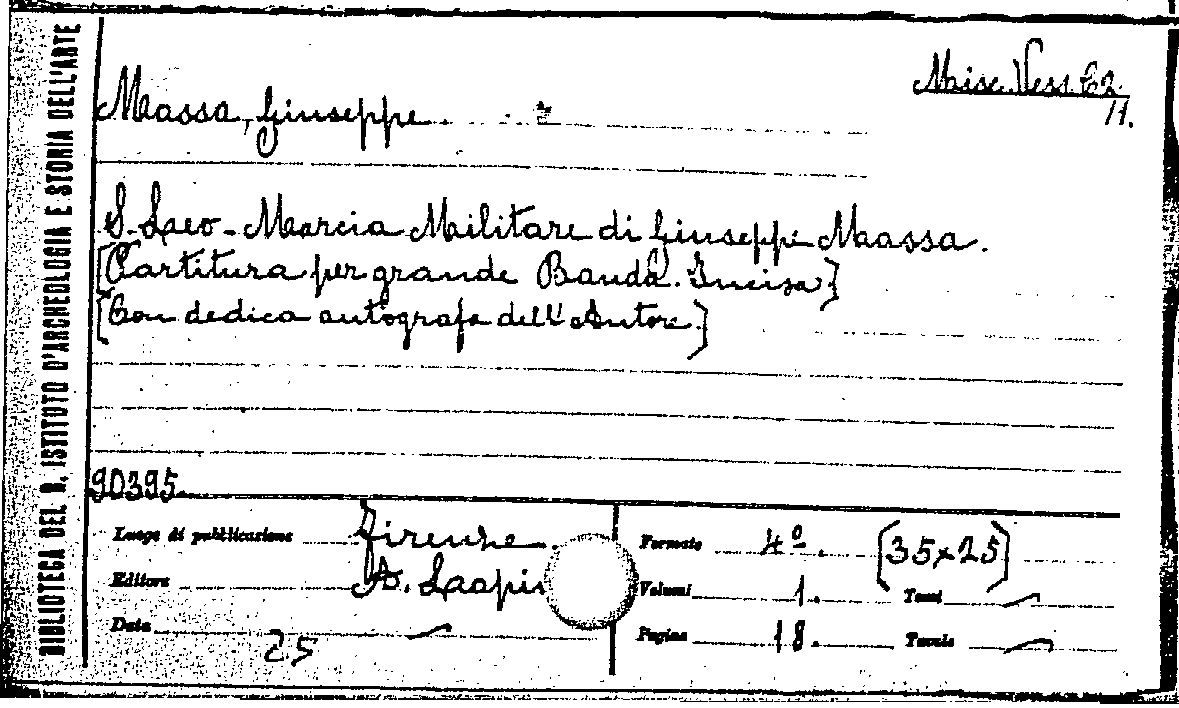 BIBLIOTECA DEL R. ISTITUTO D'ARCHEOLOGIA E STORIA DELL'ARTE
Misc. Vess. 62
11.
Massa, Giuseppe
S. Leo - Marcia Militare di Giuseppe Massa.
[Partitura per grande Banda. Incisa]
[Con dedica autografa dell'Autore]
90395
Luogo di pubblicazione Firenze
Formato 4º. [35x25]
Editore A. Lapi
Volumi 1. Tomi —
Data —
Pagine 18. Tavole —
25